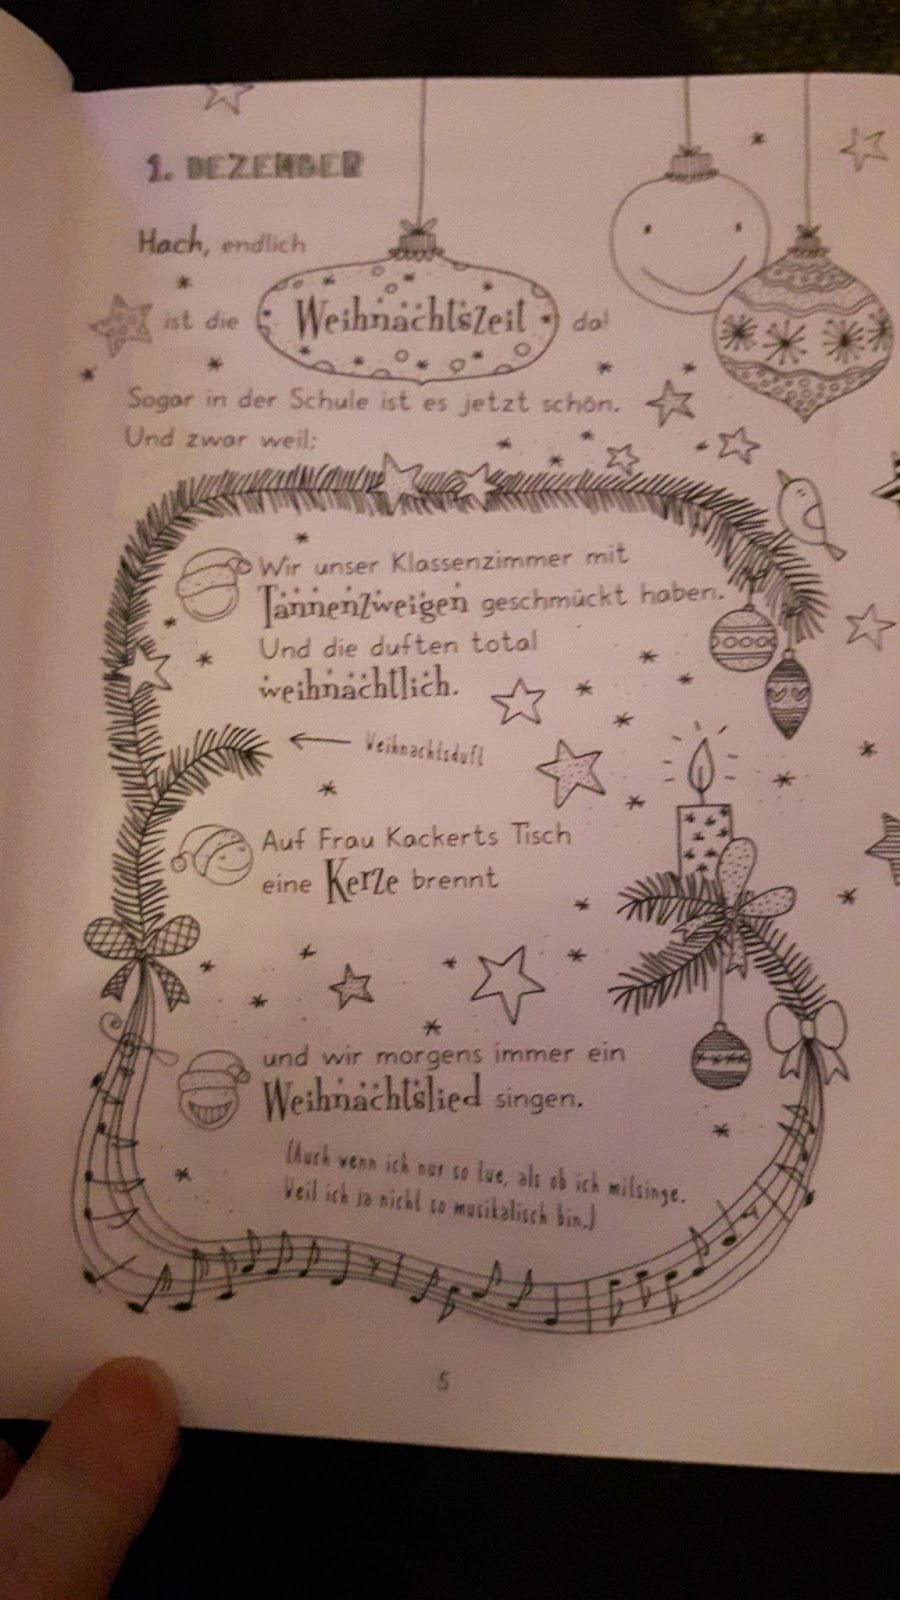 1. DEZEMBER
Hach, endlich
ist die Weihnachtszeit da!
Sogar in der Schule ist es jetzt schön.
Und zwar weil:
Wir unser Klassenzimmer mit
Tannenzweigen geschmückt haben.
Und die duften total
weihnachtlich.
Weihnachtsduft
Auf Frau Kackerts Tisch
eine Kerze brennt
und wir morgens immer ein
Weihnachtslied singen.
(Auch wenn ich nur so tue, als ob ich mitsinge.
Weil ich ja nicht so musikalisch bin.)
5